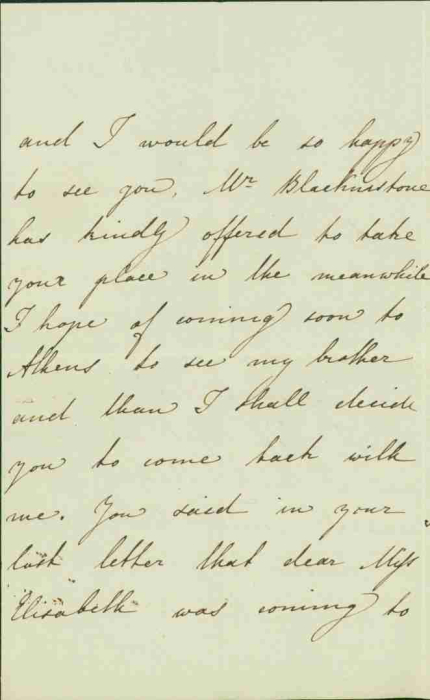 and I would be so happy
to see you. Mr Blackmstone
has kindly offered to take
your place in the meanwhile
I hope of coming soon to
Athens to see my brother
and than I shall decide
you to come back with
me. You said in your
last letter that dear Miss
Elisabeth was coming to